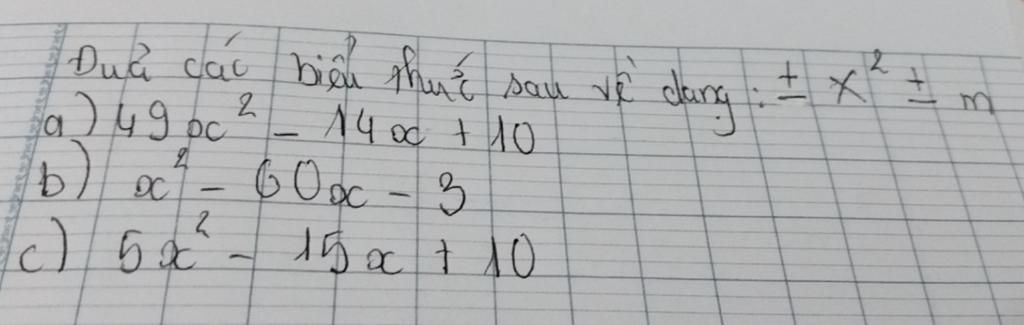 Đưa các biểu thức sau về dạng: ± X² ± m
a) 49x² - 14x + 10
b) x² - 60x - 3
c) 5x² - 15x + 10